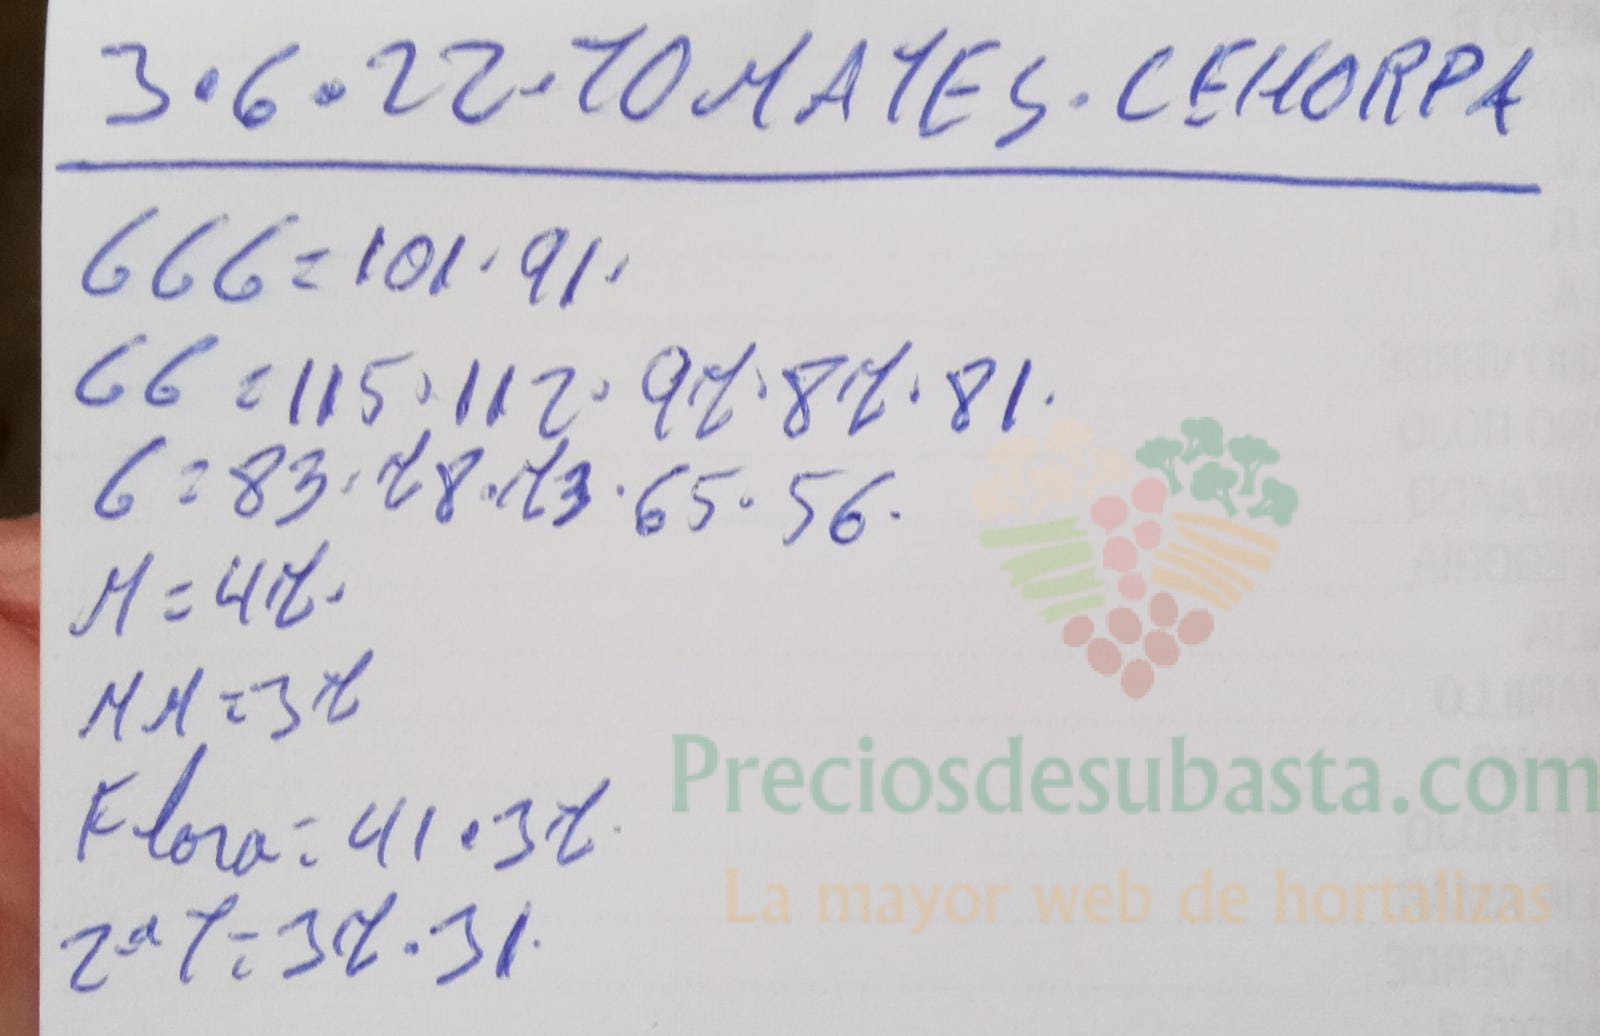 3.6.22.TOMATES.CEHORPA
GGG=101.91.
GG=115.112.97.87.81.
G=83.78.73.65.56.
M=47.
MM=37
Flora=41.37.
2ª T=37.31.
Preciosdesubasta.com
La mayor web de hortalizas